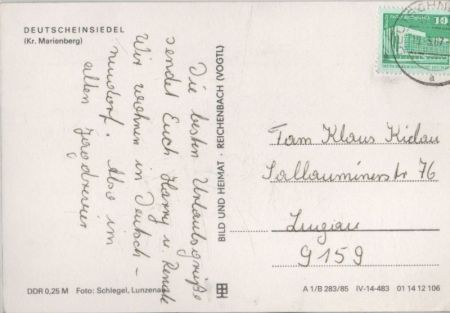 DEUTSCHEINSIEDEL
(Kr. Marienberg)
Die besten Urlaubsgrüße
sendet Euch Harry u. Renate
Wir wohnen in Deutsch-
neudorf. Also im
alten Jagdrevier
BILD UND HEIMAT · REICHENBACH (VOGTL)
10
Fam Klaus Kidau
Sallauminerstr 76
Lugau
9159
DDR 0,25 M Foto: Schlegel, Lunzenau
A 1/B 283/85 IV-14-483 01 14 12 106